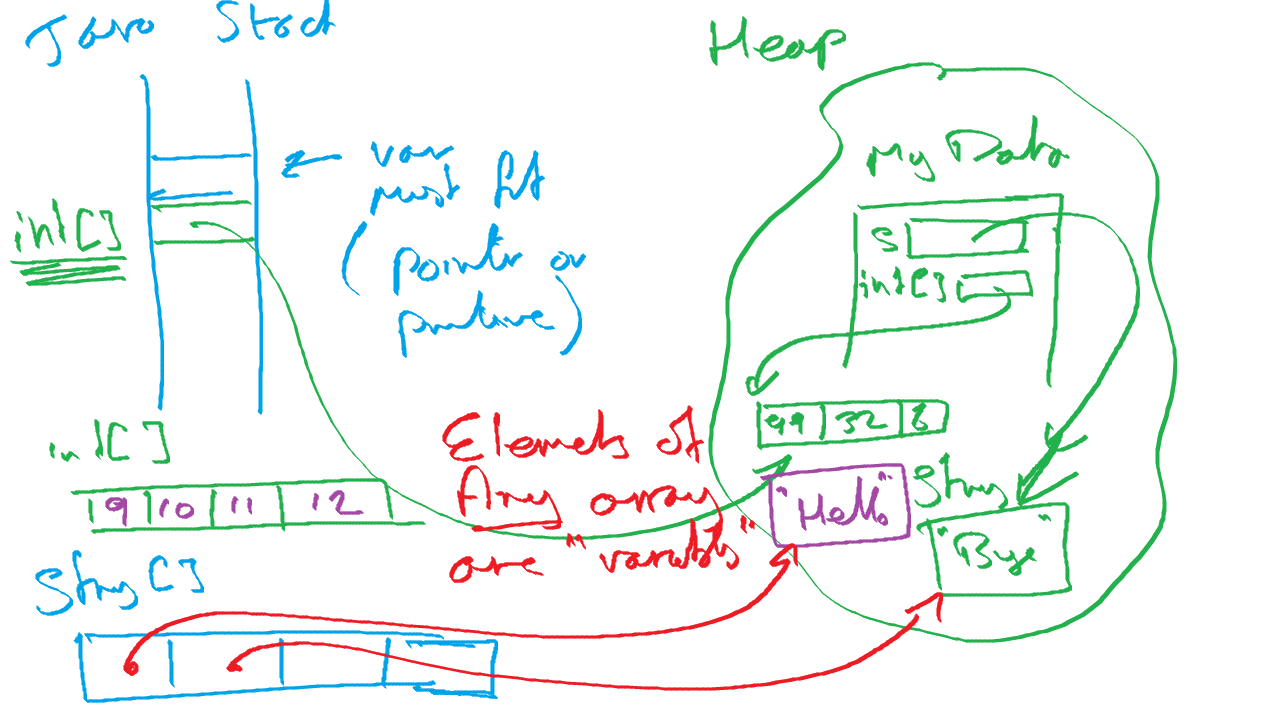 Java Stack
Heap
var
must fit
(pointer or
primitive)
int[]
My Data
S
int[]
99 32 8
int[]
9 10 11 12
Elemets of
Any array
are "variabls"
"Hello"
String
"Bye"
String[]